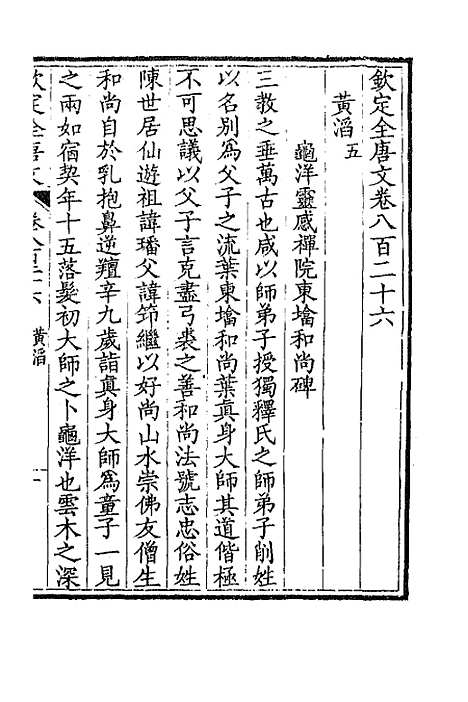 欽定全唐文卷八百二十六
黃滔五
龜洋靈感禪院東塔和尚碑
三教之垂萬古也咸以師弟子授獨釋氏之師弟子削姓
以名別爲父子之流葉東塔和尚葉眞身大師其道偕極
不可思議以父子言克盡弓裘之善和尚法號志忠俗姓
陳世居仙遊祖諱璠父諱節繼以好尚山水崇佛友僧生
和尚自於乳抱鼻逆羶辛九歲詣眞身大師爲童子一見
之兩如宿契年十五落髮初大師之卜龜洋也雲木之深
欽定全唐文 卷八百二十六 黃滔 一